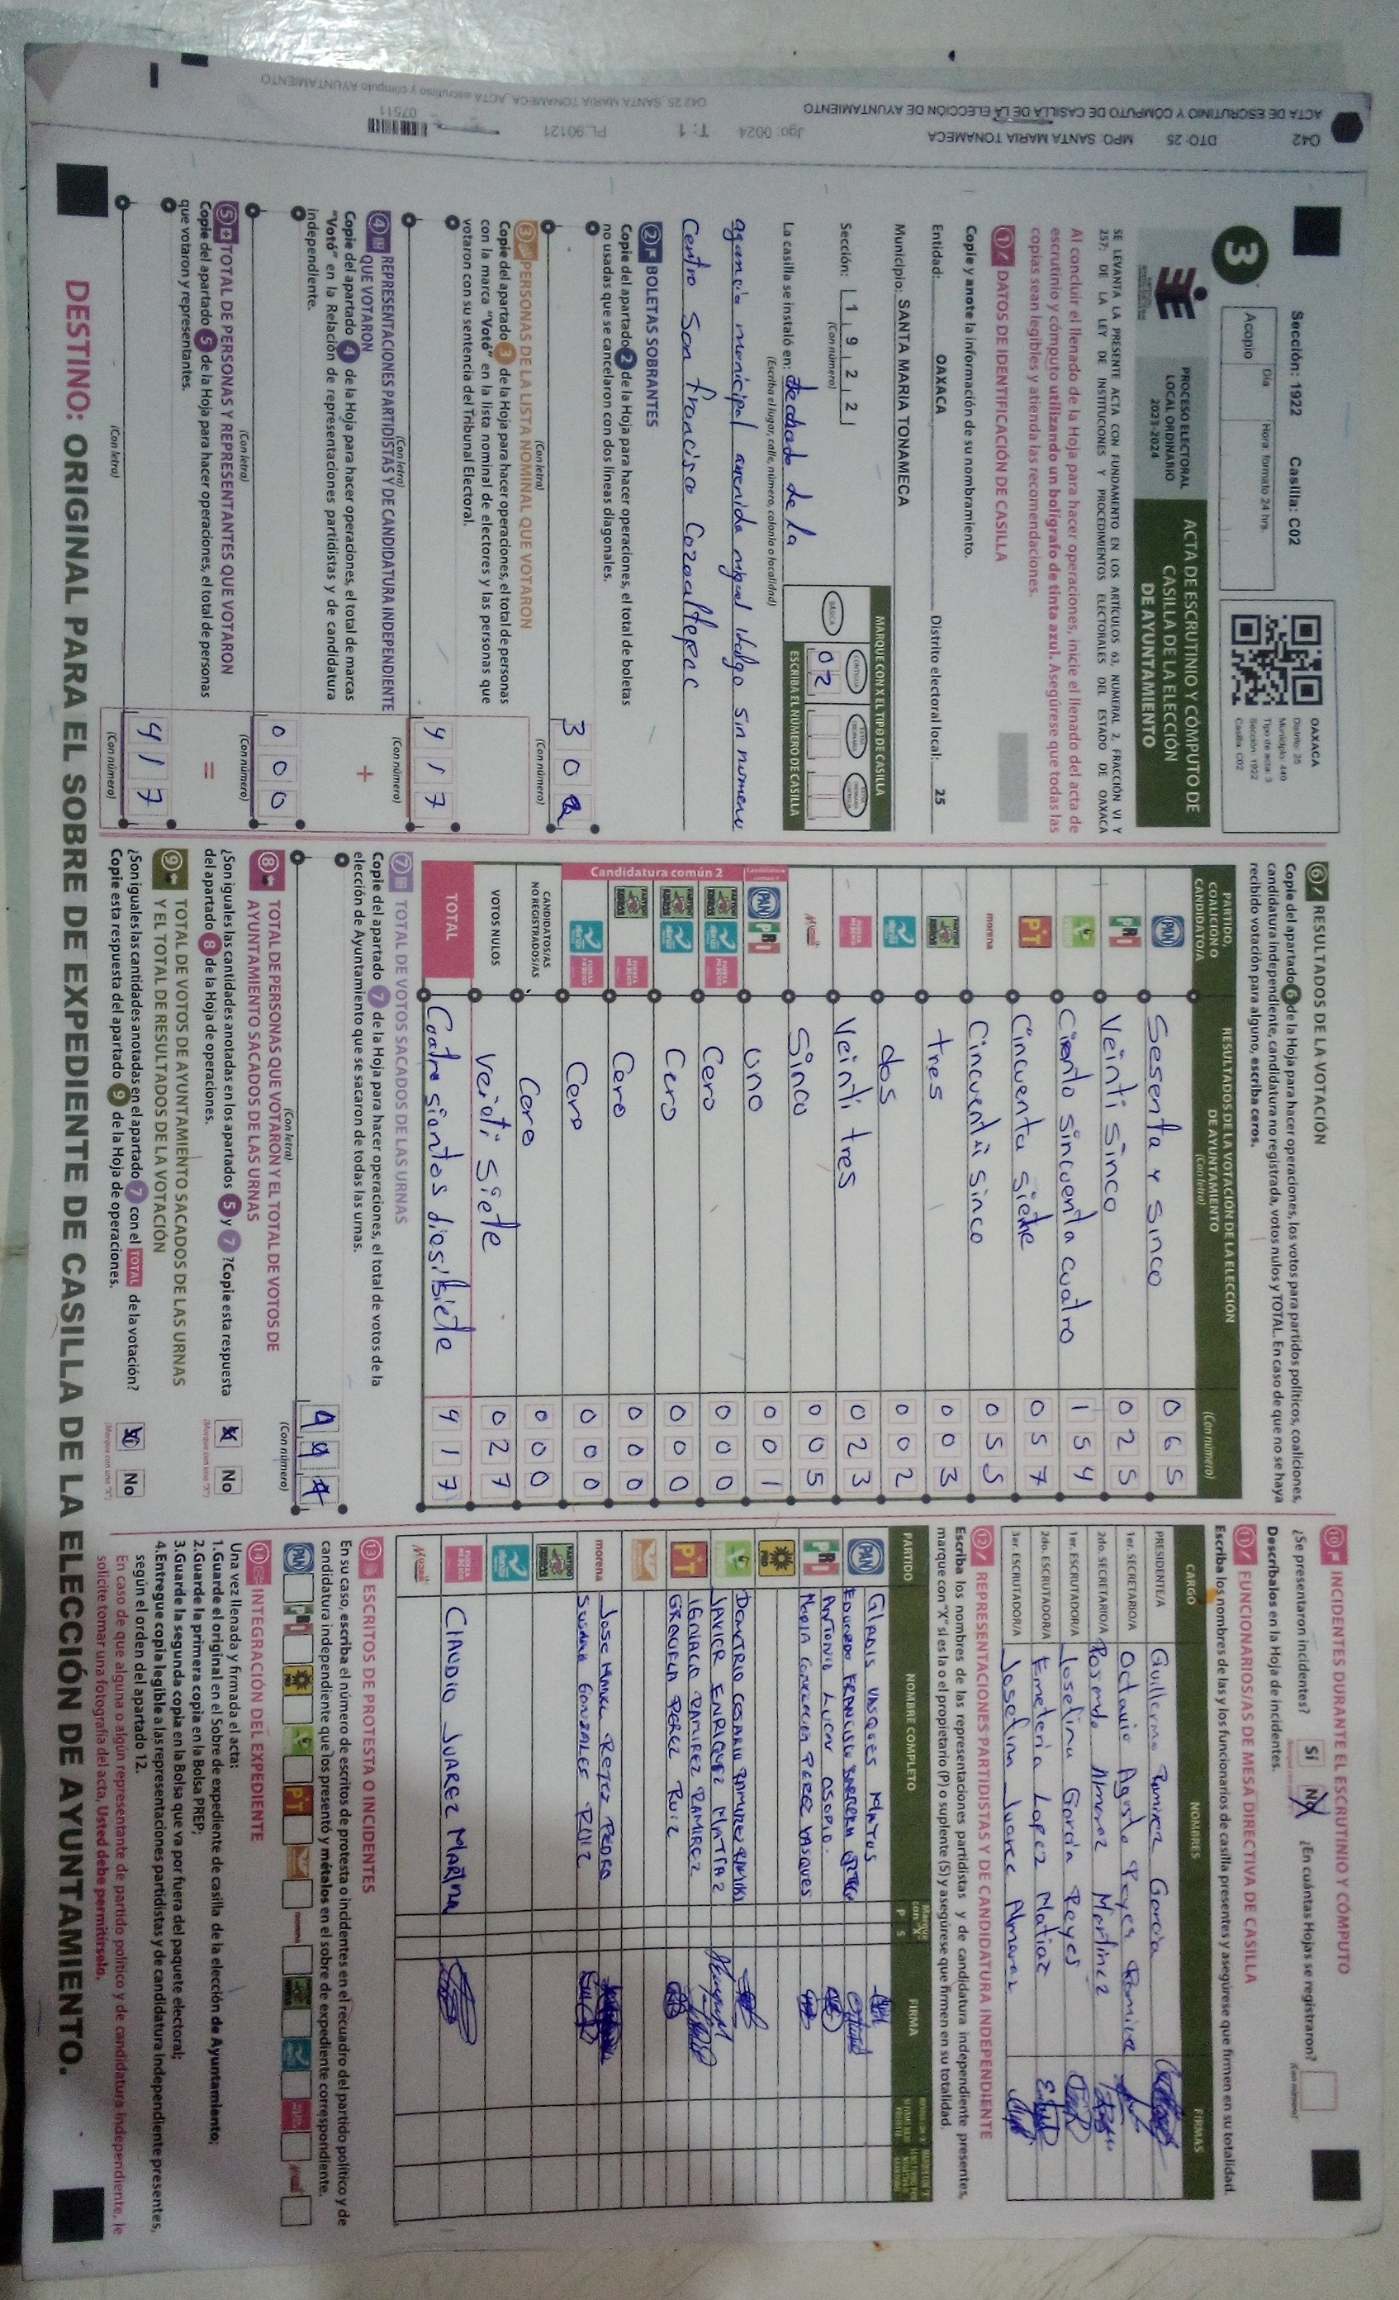 ACTA DE ESCRUTINIO Y CÓMPUTO DE CASILLA DE LA ELECCIÓN DE AYUNTAMIENTO
042 DTO: 25 MPO: SANTA MARIA TONAMECA Jgo: 0024 T: 1 PL_90121
042 25 SANTA MARIA TONAMECA_ACTA escrutinio y cómputo AYUNTAMIENTO
07511
Sección: 1922 Casilla: C02
3
Acopio
Día
Hora: formato 24 hrs.
OAXACA
Distrito: 25
Municipio: 440
Tipo de acta: 3
Sección: 1922
Casilla: C02
PROCESO ELECTORAL
LOCAL ORDINARIO
2023-2024
ACTA DE ESCRUTINIO Y CÓMPUTO DE
CASILLA DE LA ELECCIÓN
DE AYUNTAMIENTO
SE LEVANTA LA PRESENTE ACTA CON FUNDAMENTO EN LOS ARTÍCULOS 63, NUMERAL 2, FRACCIÓN VI Y
257; DE LA LEY DE INSTITUCIONES Y PROCEDIMIENTOS ELECTORALES DEL ESTADO DE OAXACA
Al concluir el llenado de la Hoja para hacer operaciones, inicie el llenado del acta de
escrutinio y cómputo utilizando un bolígrafo de tinta azul. Asegúrese que todas las
copias sean legibles y atienda las recomendaciones.
1 DATOS DE IDENTIFICACIÓN DE CASILLA
Copie y anote la información de su nombramiento.
Entidad: OAXACA Distrito electoral local: 25
Municipio: SANTA MARIA TONAMECA
Sección: 1 9 2 2
(Con número)
MARQUE CON X EL TIPO DE CASILLA
BÁSICA
02
ESCRIBA EL NÚMERO DE CASILLA
La casilla se instaló en: de la
(Escriba el lugar, calle, número, colonia o localidad)
agencia municipal avenida migual Hidalgo sin numero
Centro San francisco Cozoaltepec
2 BOLETAS SOBRANTES
Copie del apartado 2 de la Hoja para hacer operaciones, el total de boletas
no usadas que se cancelaron con dos líneas diagonales.
3 0
(Con letra) (Con número)
3 PERSONAS DE LA LISTA NOMINAL QUE VOTARON
Copie del apartado 3 de la Hoja para hacer operaciones, el total de personas
con la marca “Votó” en la lista nominal de electores y las personas que
votaron con su sentencia del Tribunal Electoral.
4 1 7
(Con letra) (Con número)
4 REPRESENTACIONES PARTIDISTAS Y DE CANDIDATURA INDEPENDIENTE
QUE VOTARON
Copie del apartado 4 de la Hoja para hacer operaciones, el total de marcas
“Votó” en la Relación de representaciones partidistas y de candidatura
independiente.
+
0 0 0
(Con letra) (Con número)
5 TOTAL DE PERSONAS Y REPRESENTANTES QUE VOTARON
Copie del apartado 5 de la Hoja para hacer operaciones, el total de personas
que votaron y representantes.
=
4 1 7
(Con letra) (Con número)
6 RESULTADOS DE LA VOTACIÓN
Copie del apartado 6 de la Hoja para hacer operaciones, los votos para partidos políticos, coaliciones,
candidatura independiente, candidatura no registrada, votos nulos y TOTAL. En caso de que no se haya
recibido votación para alguno, escriba ceros.
PARTIDO,
COALICIÓN O
CANDIDATO/A
RESULTADOS DE LA VOTACIÓN DE LA ELECCIÓN
DE AYUNTAMIENTO
(Con letra)
(Con número)
PAN Sesenta y sinco 0 6 5
PRI Veinti sinco 0 2 5
Ciento sincuenta cuatro 1 5 4
PT Cincuenta siete 0 5 7
morena Cincuenti sinco 0 5 5
tres 0 0 3
dos 0 0 2
Veinti tres 0 2 3
Sinco 0 0 5
PAN PRI uno 0 0 1
Candidatura común 2
Cero 0 0 0
Cero 0 0 0
Cero 0 0 0
Cero 0 0 0
CANDIDATOS/AS
NO REGISTRADOS/AS Cero 0 0 0
VOTOS NULOS Veinti Siete 0 2 7
TOTAL Cuatro sientos diesisiete 4 1 7
7 TOTAL DE VOTOS SACADOS DE LAS URNAS
Copie del apartado 7 de la Hoja para hacer operaciones, el total de votos de la
elección de Ayuntamiento que se sacaron de todas las urnas.
(Con letra) (Con número)
8 TOTAL DE PERSONAS QUE VOTARON Y EL TOTAL DE VOTOS DE
AYUNTAMIENTO SACADOS DE LAS URNAS
¿Son iguales las cantidades anotadas en los apartados 5 y 7 ? Copie esta respuesta
del apartado 8 de la Hoja de operaciones.
No
9 TOTAL DE VOTOS DE AYUNTAMIENTO SACADOS DE LAS URNAS
Y EL TOTAL DE RESULTADOS DE LA VOTACIÓN
¿Son iguales las cantidades anotadas en el apartado 7 con el TOTAL de la votación?
Copie esta respuesta del apartado 9 de la Hoja de operaciones.
No
10 INCIDENTES DURANTE EL ESCRUTINIO Y CÓMPUTO
¿Se presentaron incidentes? SÍ No ¿En cuántas Hojas se registraron?
(Con número)
Descríbalos en la Hoja de incidentes.
11 FUNCIONARIOS/AS DE MESA DIRECTIVA DE CASILLA
Escriba los nombres de las y los funcionarios de casilla presentes y asegúrese que firmen en su totalidad.
CARGO NOMBRES FIRMAS
PRESIDENTE/A Guillermo Ramirez Garcia
1er. SECRETARIO/A Octavio Agosto Reyes Ramirez
2do. SECRETARIO/A Rosendo Almaraz Martinez
1er. ESCRUTADOR/A Joselina Garcia Reyes
2do. ESCRUTADOR/A Emeteria Lopez Matiaz
3er. ESCRUTADOR/A Joselina Juarez Almaraz
12 REPRESENTACIONES PARTIDISTAS Y DE CANDIDATURA INDEPENDIENTE
Escriba los nombres de las representaciones partidistas y de candidatura independiente presentes,
marque con “X” si es la o el propietario (P) o suplente (S) y asegúrese que firmen en su totalidad.
PARTIDO NOMBRE COMPLETO P S FIRMA
PAN GLADIS VASQUES MATUS
EDUARDO FRANCISCO BARRERA
PRI ANTONIO LUCAS OSORIO
MARIA CONCEPCION PEREZ VASQUES
PRD
DEMETRIO CESARIO RAMIREZ
JAVIER ENRIQUEZ MATIAZ
PT IGNACIO RAMIREZ RAMIREZ
GRACIELA PEREZ RUIZ
morena JOSE MANUEL REYES PEDRO
SUSANA GONZALES RUIZ
CLAUDIO JUAREZ MARTINEZ
13 ESCRITOS DE PROTESTA O INCIDENTES
En su caso, escriba el número de escritos de protesta o incidentes en el recuadro del partido político y de
candidatura independiente que los presentó y métalos en el sobre de expediente correspondiente.
PAN PRI PRD PT morena
14 INTEGRACIÓN DEL EXPEDIENTE
Una vez llenada y firmada el acta:
1.Guarde el original en el Sobre de expediente de casilla de la elección de Ayuntamiento;
2.Guarde la primera copia en la Bolsa PREP;
3.Guarde la segunda copia en la Bolsa que va por fuera del paquete electoral;
4.Entregue copia legible a las representaciones partidistas y de candidatura independiente presentes,
según el orden del apartado 12.
En caso de que alguna o algún representante de partido político y de candidatura independiente, le
solicite tomar una fotografía del acta, Usted debe permitírselo.
DESTINO: ORIGINAL PARA EL SOBRE DE EXPEDIENTE DE CASILLA DE LA ELECCIÓN DE AYUNTAMIENTO.